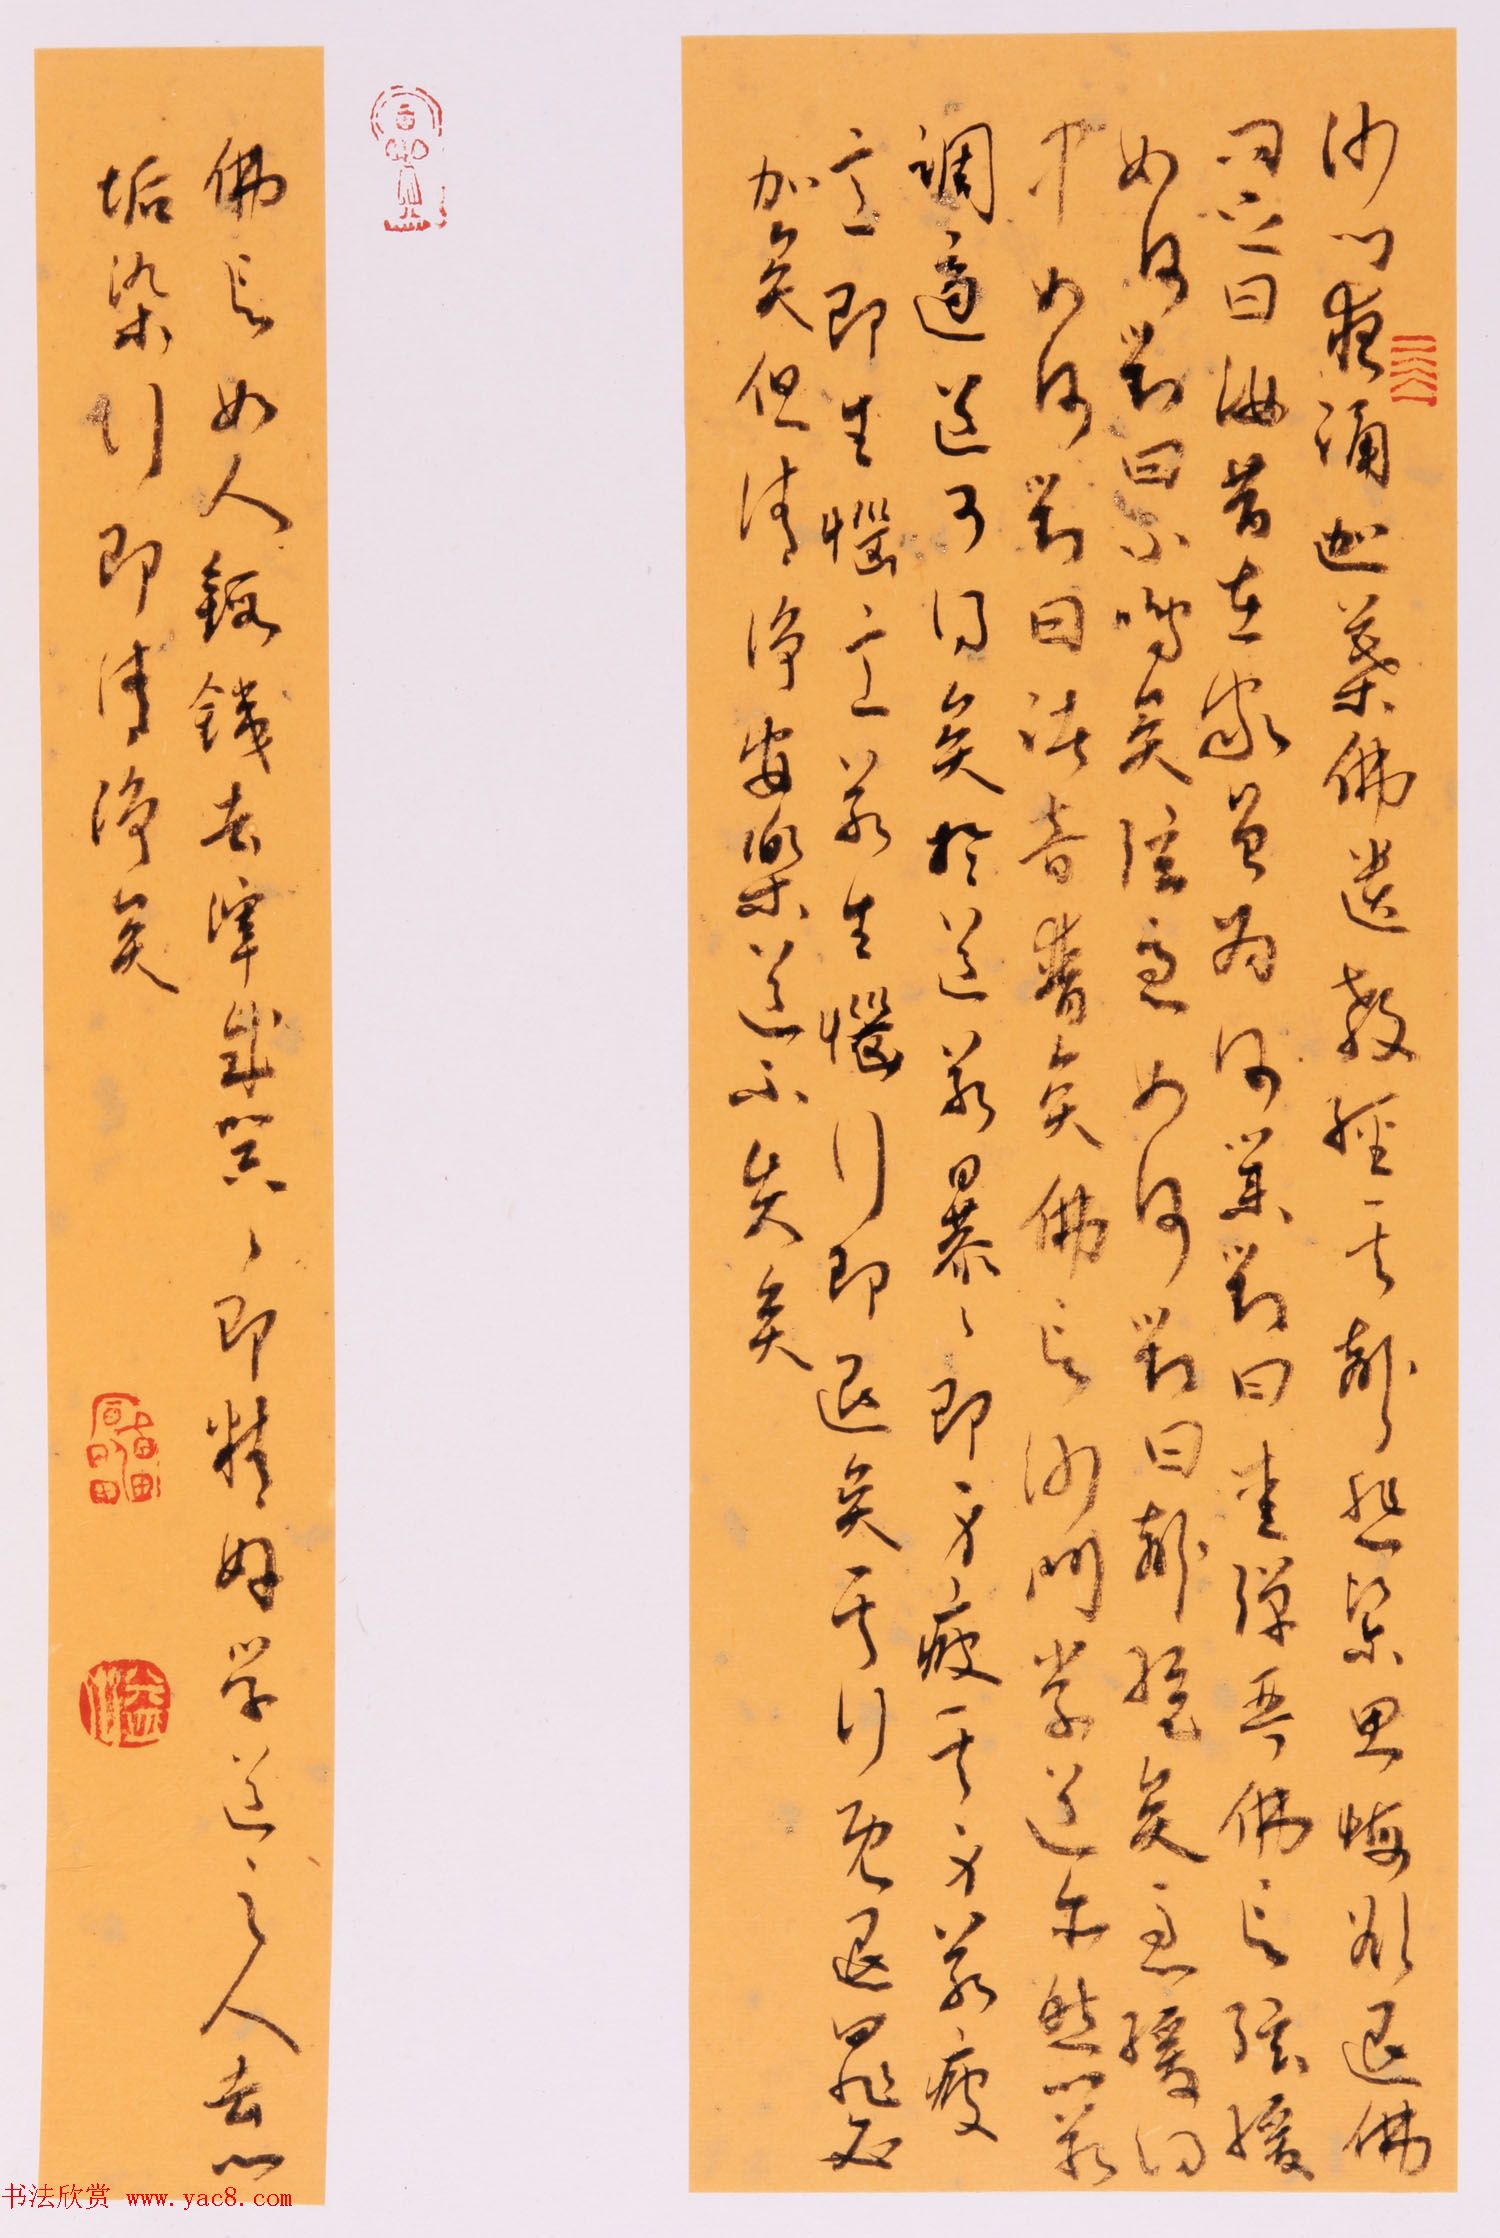 沙門夜誦迦葉佛遺教經其聲悲緊思悔欲退佛
問之曰汝昔在家曾為何業對曰愛彈琴佛言弦緩
如何對曰不鳴矣弦急如何對曰聲絕矣急緩得
中如何對曰諸音普矣佛言沙門學道亦然心若
調適道可得矣於道若暴暴即身疲其身若疲
意即生惱意若生惱行即退矣其行既退罪必
加矣但清淨安樂道不失矣
佛言如人鍛鐵去滓成器器即精好學道之人去心
垢染行即清淨矣
书法欣赏 www.yac8.com